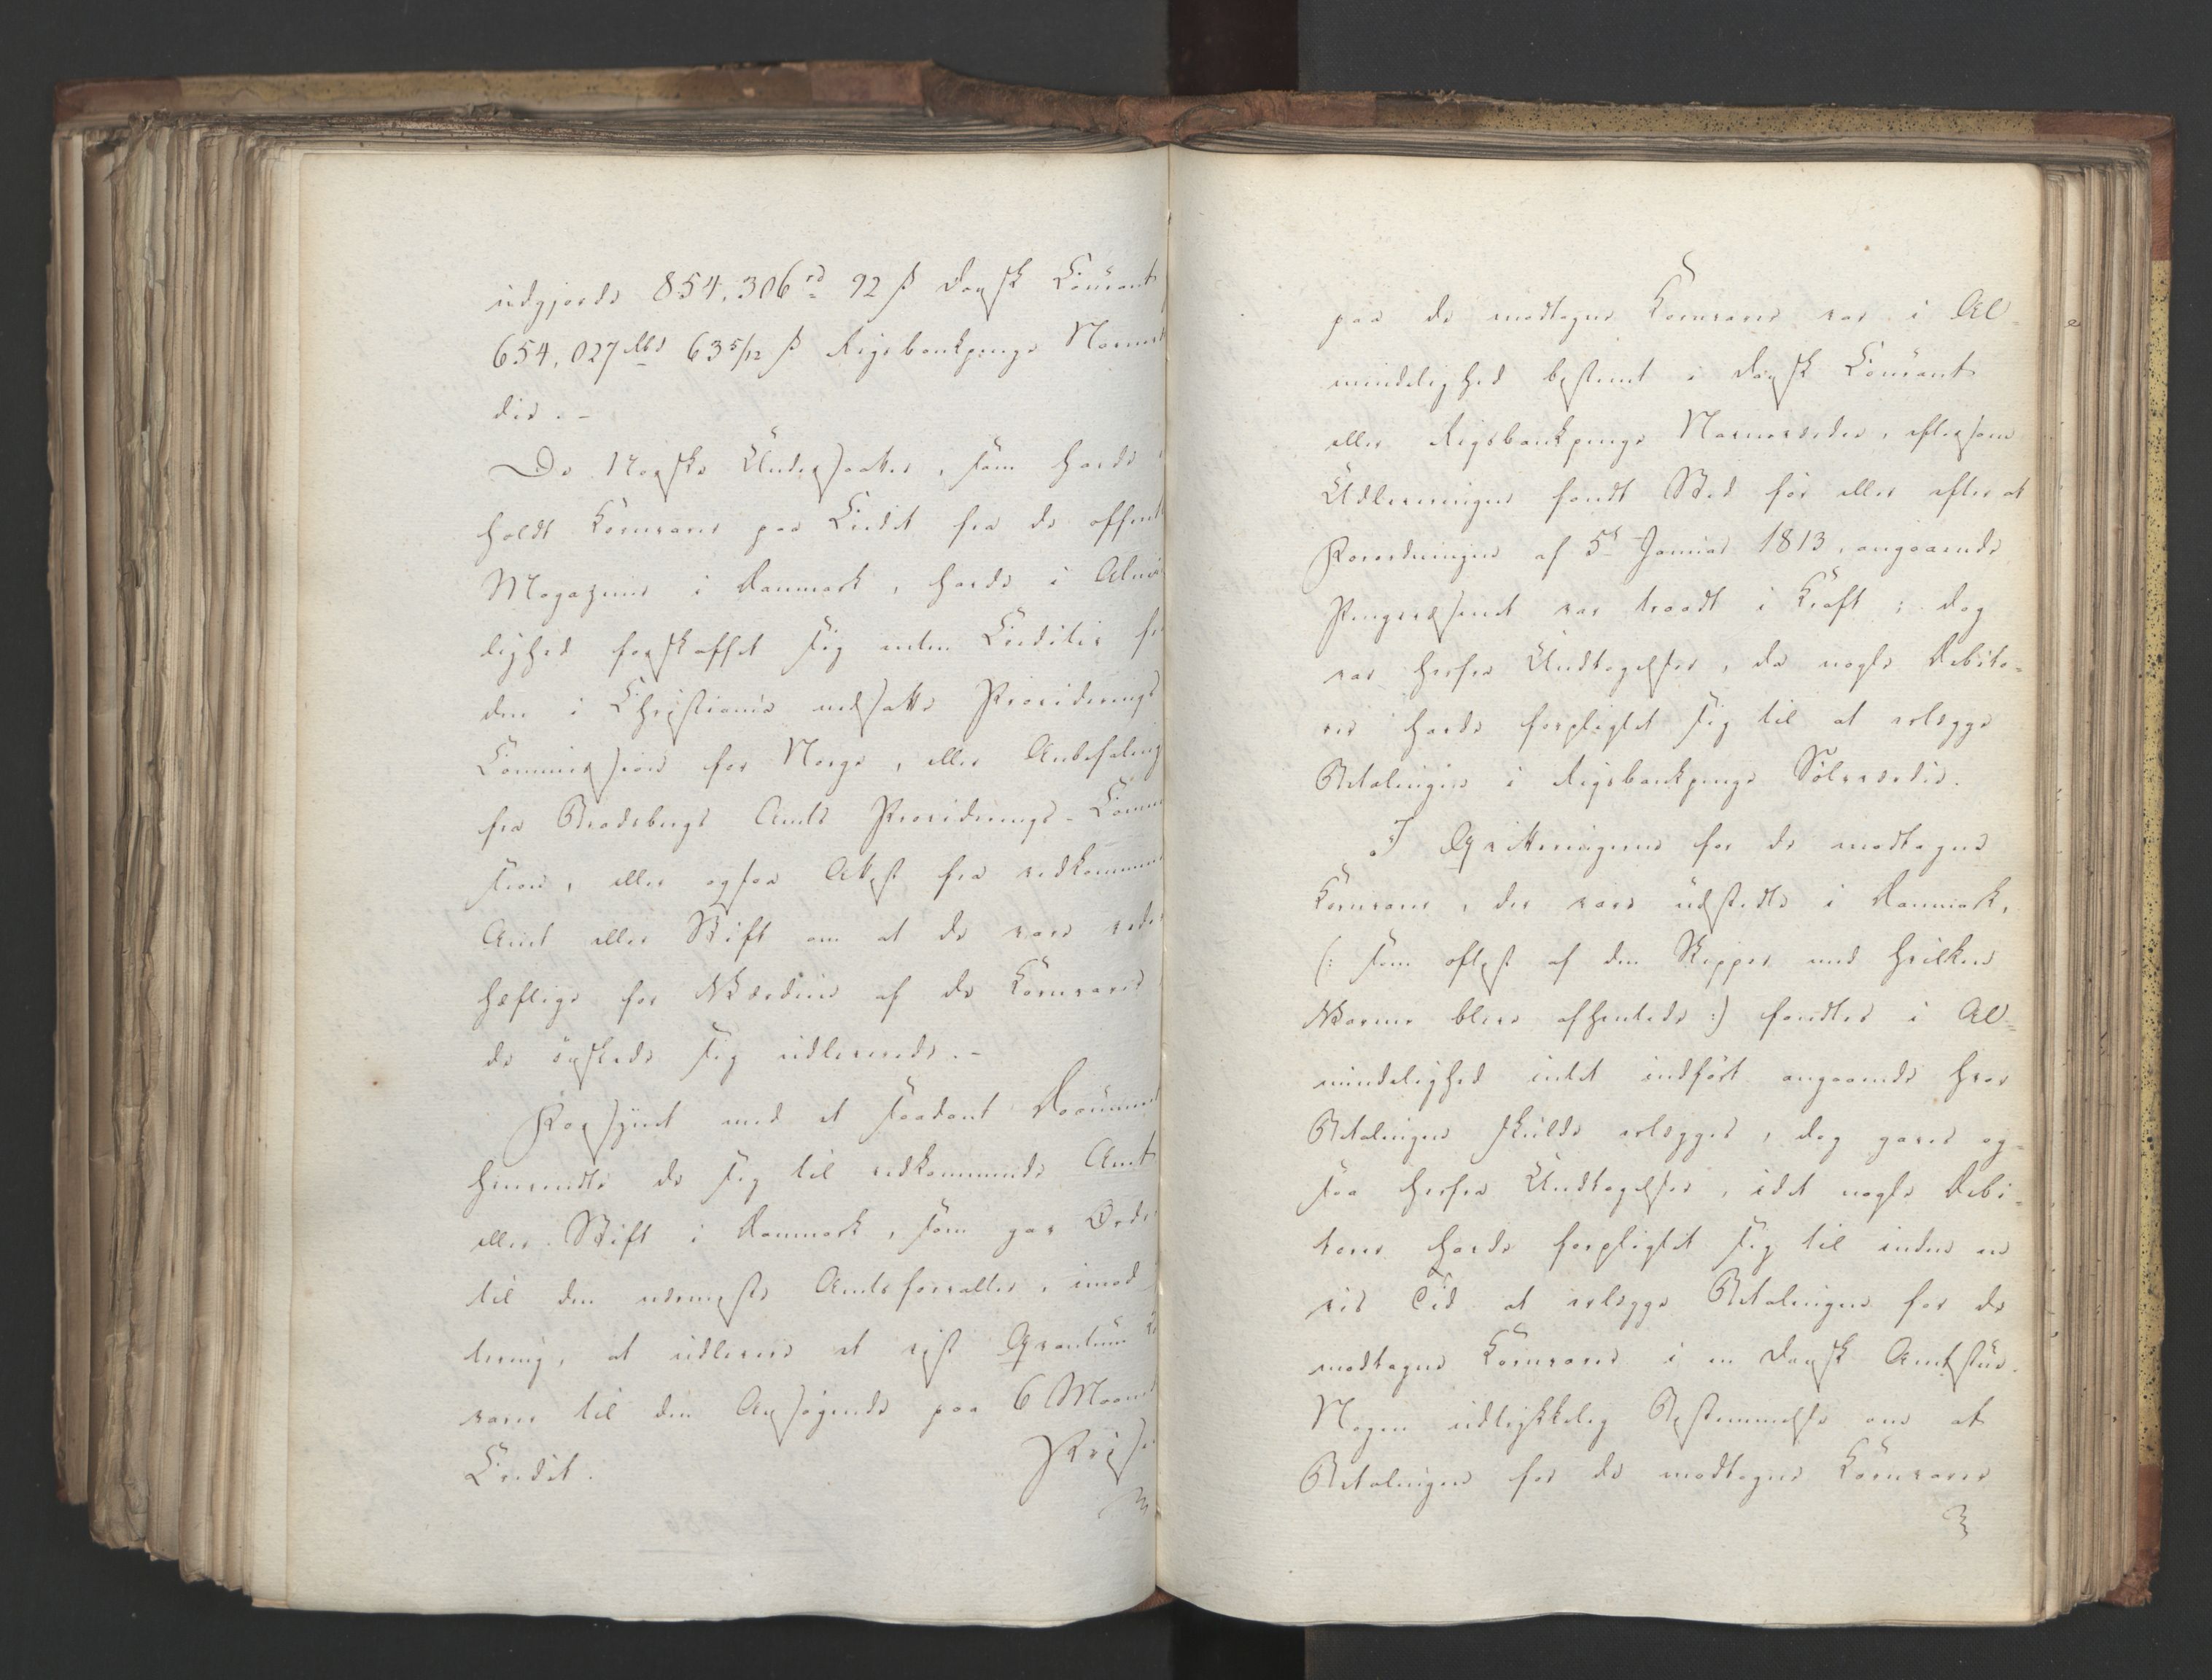 udgjorde 854,306 rd 92 ß dansk Courant
654,027 Rbd 63 5/12 ß Rigsbankpenge Navnevær
die. –
De Norske Undersaatter, som havde
holdt Kornvarer paa Credit fra de offentl
Magaziner i Danmark, havde i Almin
delighed forskaffet sig enten Creditiv fra
den i Christiania nedsatte Providerings
Commission for Norge, eller Anbefaling
fra Bradsbergs Amts Providerings-Commi
sion, eller ogsaa Attest fra vedkommen
Amt eller Stift om at de vare vede
hæftige for Værdien af de Kornvarer
de ønskede sig udleverede. –
Forsynet med et saadant Document
henvendte de sig til vedkommende Amt
eller Stift i Danmark, som gav Ordr
til den nærmeste Amtsforvalter, imod
tering, at udlevere et vist Qvantum
varer til den Ansøgende paa 6 Maane
Credit.
Prise
paa de modtagne Kornvarer var i Al-
mindelighed bestemt i dansk Courant
eller Rigsbankpenge Navneværdie, eftersom
Udleveringen fandt Sted før eller efter at
Forordningen af 5t Januar 1813, angaaende
Pengevæsenet var traadt i Kraft; dog
var herfra Undtagelser, da nogle Debito-
rer havde forpligtet sig til at erlægge
Betalingen i Rigsbankpenge Sølvværdie.
I Qvitteringerne for de modtagne
Kornvarer, der vare udstedte i Danmark,
(: som oftest af den Skipper med hvilken
Varerne bleve afhentede :) fandtes i Al-
mindelighed intet indført angaaende hvor
Betalingen skulde erlægges, dog gaves og-
saa herfra Undtagelser, idet nogle Debi-
torer havde forpligtet sig til inden en
vis Tid at erlægge Betalingen for de
modtagne Kornvarer i en dansk Amtstue.
Nogen udtrykkelig Bestemmelse om at
Betalingen for de modtagne Kornvarer